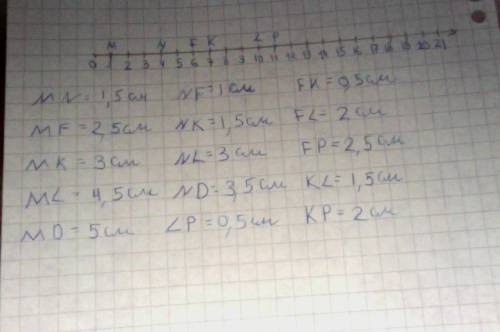 M N F K L P
0 1 2 3 4 5 6 7 8 9 10 11 12 13 14 15 16 17 18 19 20 21
MN = 1,5 см NF = 1 см FK = 0,5 см
MF = 2,5 см NK = 1,5 см FL = 2 см
MK = 3 см NL = 3 см FP = 2,5 см
ML = 4,5 см ND = 3,5 см KL = 1,5 см
MD = 5 см LP = 0,5 см KP = 2 см